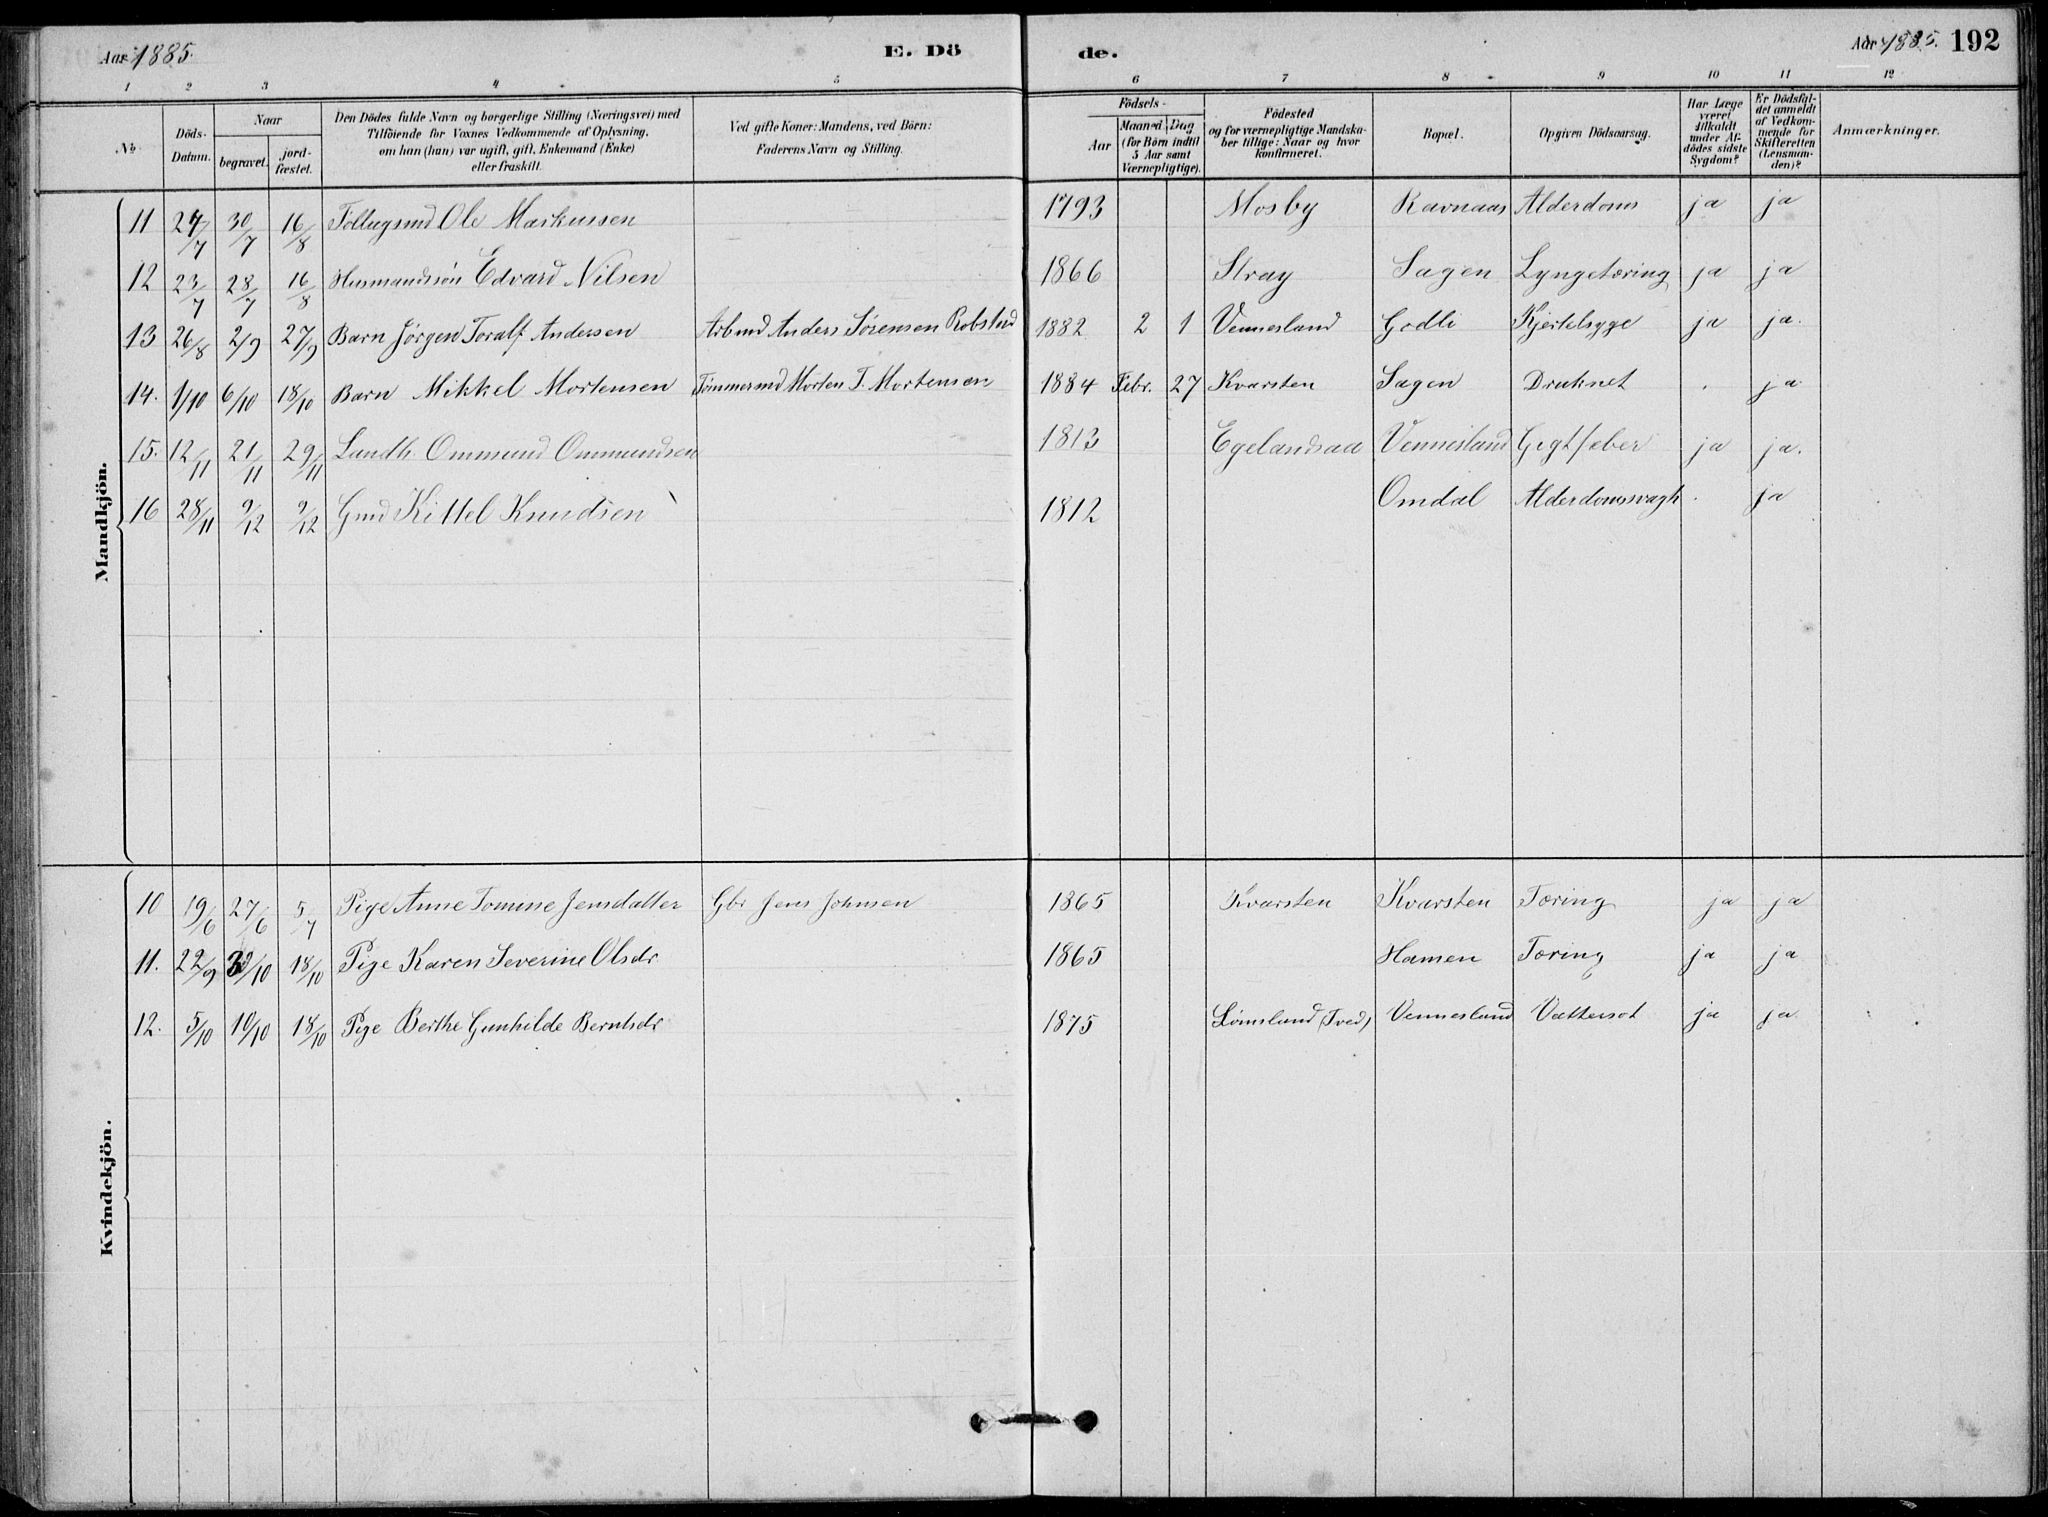 Aar 1885. E. Dö de. Aar 1885. 192
1 2 3 4 5 6 7 8 9 10 11 12
No.
Döds-Datum.
Naar
begravet. jord-fæstet.
Den Dödes fulde Navn og borgerlige Stilling (Næringsvei) med
Tilföiende for Voxnes Vedkommende af Oplysning,
om han (hun) var ugift, gift, Enkemand (Enke)
eller fraskilt.
Ved gifte Koner: Mandens, ved Börn:
Faderens Navn og Stilling.
Födsels-
Aar
Maaned Dag
(for Börn indtil
5 Aar samt
Værnepligtige).
Födested
og for værnepligtige Mandska-
ber tillige: Naar og hvor
konfirmeret.
Bopæl.
Opgiven Dödsaarsag.
Har Læge
været
tilkaldt
under Af-
dödes sidste
Sygdom?
Er Dödsfal-
det anmeldt
af Vedkom-
mende for
Skifteretten
(Lensman-
den)?
Anmærkninger.
Mandkjön.
11 24/7 30/7 16/8 Ole Markussen 1793 Mosby Ravnaas Alderdoms ja ja
12 23/7 28/7 16/8 Husmandssön Edvard Nilsen 1866 Stray Sagen Lyngetæring ja ja
13 26/8 2/9 27/9 Barn Jörgen Toralf Andersen Arbmd Anders Sörensen Robstad 1882 2 1 Vennesland Godli Kjertelsyge ja ja.
14. 1/10 6/10 18/10 Barn Mikkel Mortensen Tömmermd Morten T. Mortensen 1884 Febr. 27 Kvarsten Sagen Druknet . ja
15. 12/11 21/11 29/11 Landh. Ommund Ommundsen 1813 Egelandsaa Vennesland Gigtfeber ja ja.
16 28/11 9/12 9/12 Gmd Kittel Knudsen 1812 Omdal Alderdomssvagh . ja
Kvindekjön.
10 19/6 27/6 5/7 Pige Anne Tomine Jensdatter Gbr Jens Johnsen 1865 Kvarsten Kvarsten Tæring ja ja
11. 22/9 3/10 18/10 Pige Karen Severine Olsdr 1865 Hamen Tæring ja ja
12. 5/10 10/10 18/10 Pige Berthe Gunhilde Berntsdr 1875 Lömsland (Tved) Vennesland Vattersot ja ja